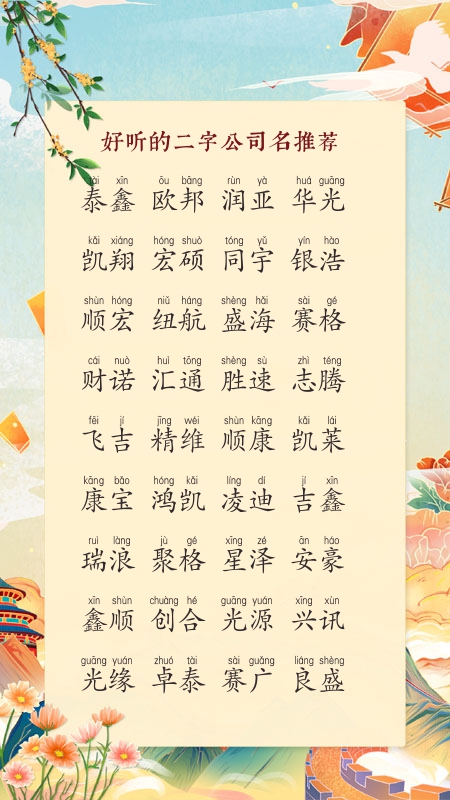 好听的二字公司名推荐
tài xīn ōu bāng rùn yà huá guāng
泰鑫 欧邦 润亚 华光
kǎi xiáng hóng shuò tóng yǔ yín hào
凯翔 宏硕 同宇 银浩
shùn hóng niǔ háng shèng hǎi sài gé
顺宏 纽航 盛海 赛格
cái nuò huì tōng shèng sù zhì téng
财诺 汇通 胜速 志腾
fēi jí jīng wéi shùn kāng kǎi lái
飞吉 精维 顺康 凯莱
kāng bǎo hóng kǎi líng dí jí xīn
康宝 鸿凯 凌迪 吉鑫
ruì làng jù gé xīng zé ān háo
瑞浪 聚格 星泽 安豪
xīn shùn chuàng hé guāng yuán xīng xùn
鑫顺 创合 光源 兴讯
guāng yuán zhuó tài sài guǎng liáng shèng
光缘 卓泰 赛广 良盛